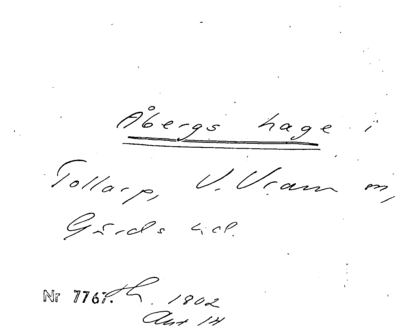 Åbergs hage i
Tollarp, V. Vram m,
Gärds hd.
Nr 7767. 1802